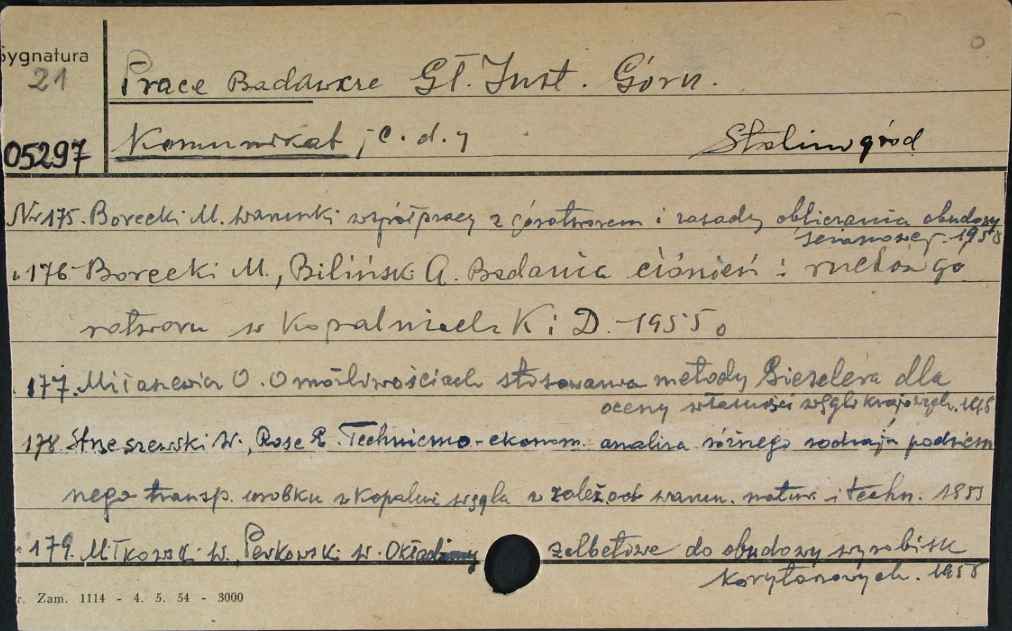 Sygnatura
21 Prace Badawcze Gł. Inst. Górn.
05297 Komunikat, c. d. 7 Stalinogród
Nr 175. Borecki M. Warunki współpracy z górotworem i zasady obliczania obudowy
ścianowej. 1955
" 176 Borecki M., Biliński A. Badania ciśnień i ruchów gó
rotworu w Kopalniach K i D. - 1955
" 177. O możliwościach stosowania metody Gieselera dla
oceny własności węgli krajowych. 195
178. Strzeszewski W., Rose R. Techniczno-ekonom. analiza różnego rodzaju podziem
nego transp. urobku w kopalni węgla w zależ. od warun. natur. i techn. 1955
" 179. W., Perkowski W. Okładziny żelbetowe do obudowy wyrobisk
korytarzowych. 1955
r. Zam. 1114 - 4. 5. 54 - 3000